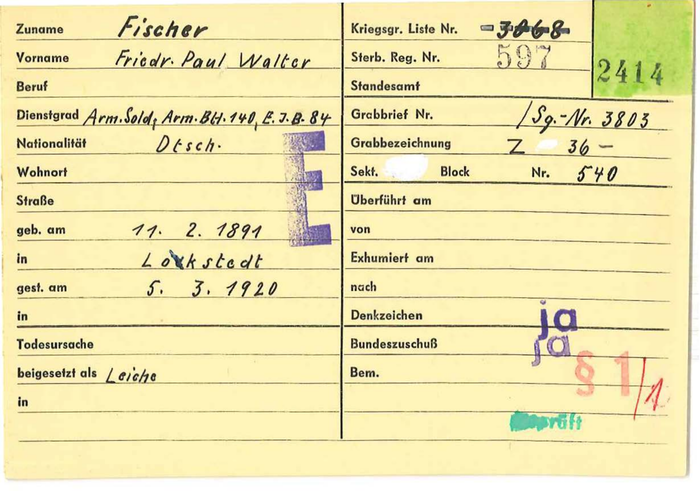 Zuname Fischer
Vorname Friedr. Paul Walter
Beruf
Dienstgrad Arm.Sold, Arm.Btl.140, E.J.B. 84
Nationalität Dtsch.
Wohnort
Straße
geb. am 11. 2. 1891
in Lockstedt
gest. am 5. 3. 1920
in
Todesursache
beigesetzt als Leiche
in
E
Kriegsgr. Liste Nr. 3068
Sterb. Reg. Nr. 597
2414
Standesamt
Grabbrief Nr. /Sg.-Nr. 3803
Grabbezeichnung Z 36 –
Sekt. Block Nr. 540
Überführt am
von
Exhumiert am
nach
Denkzeichen ja
Bundeszuschuß ja
Bem. § 1/1